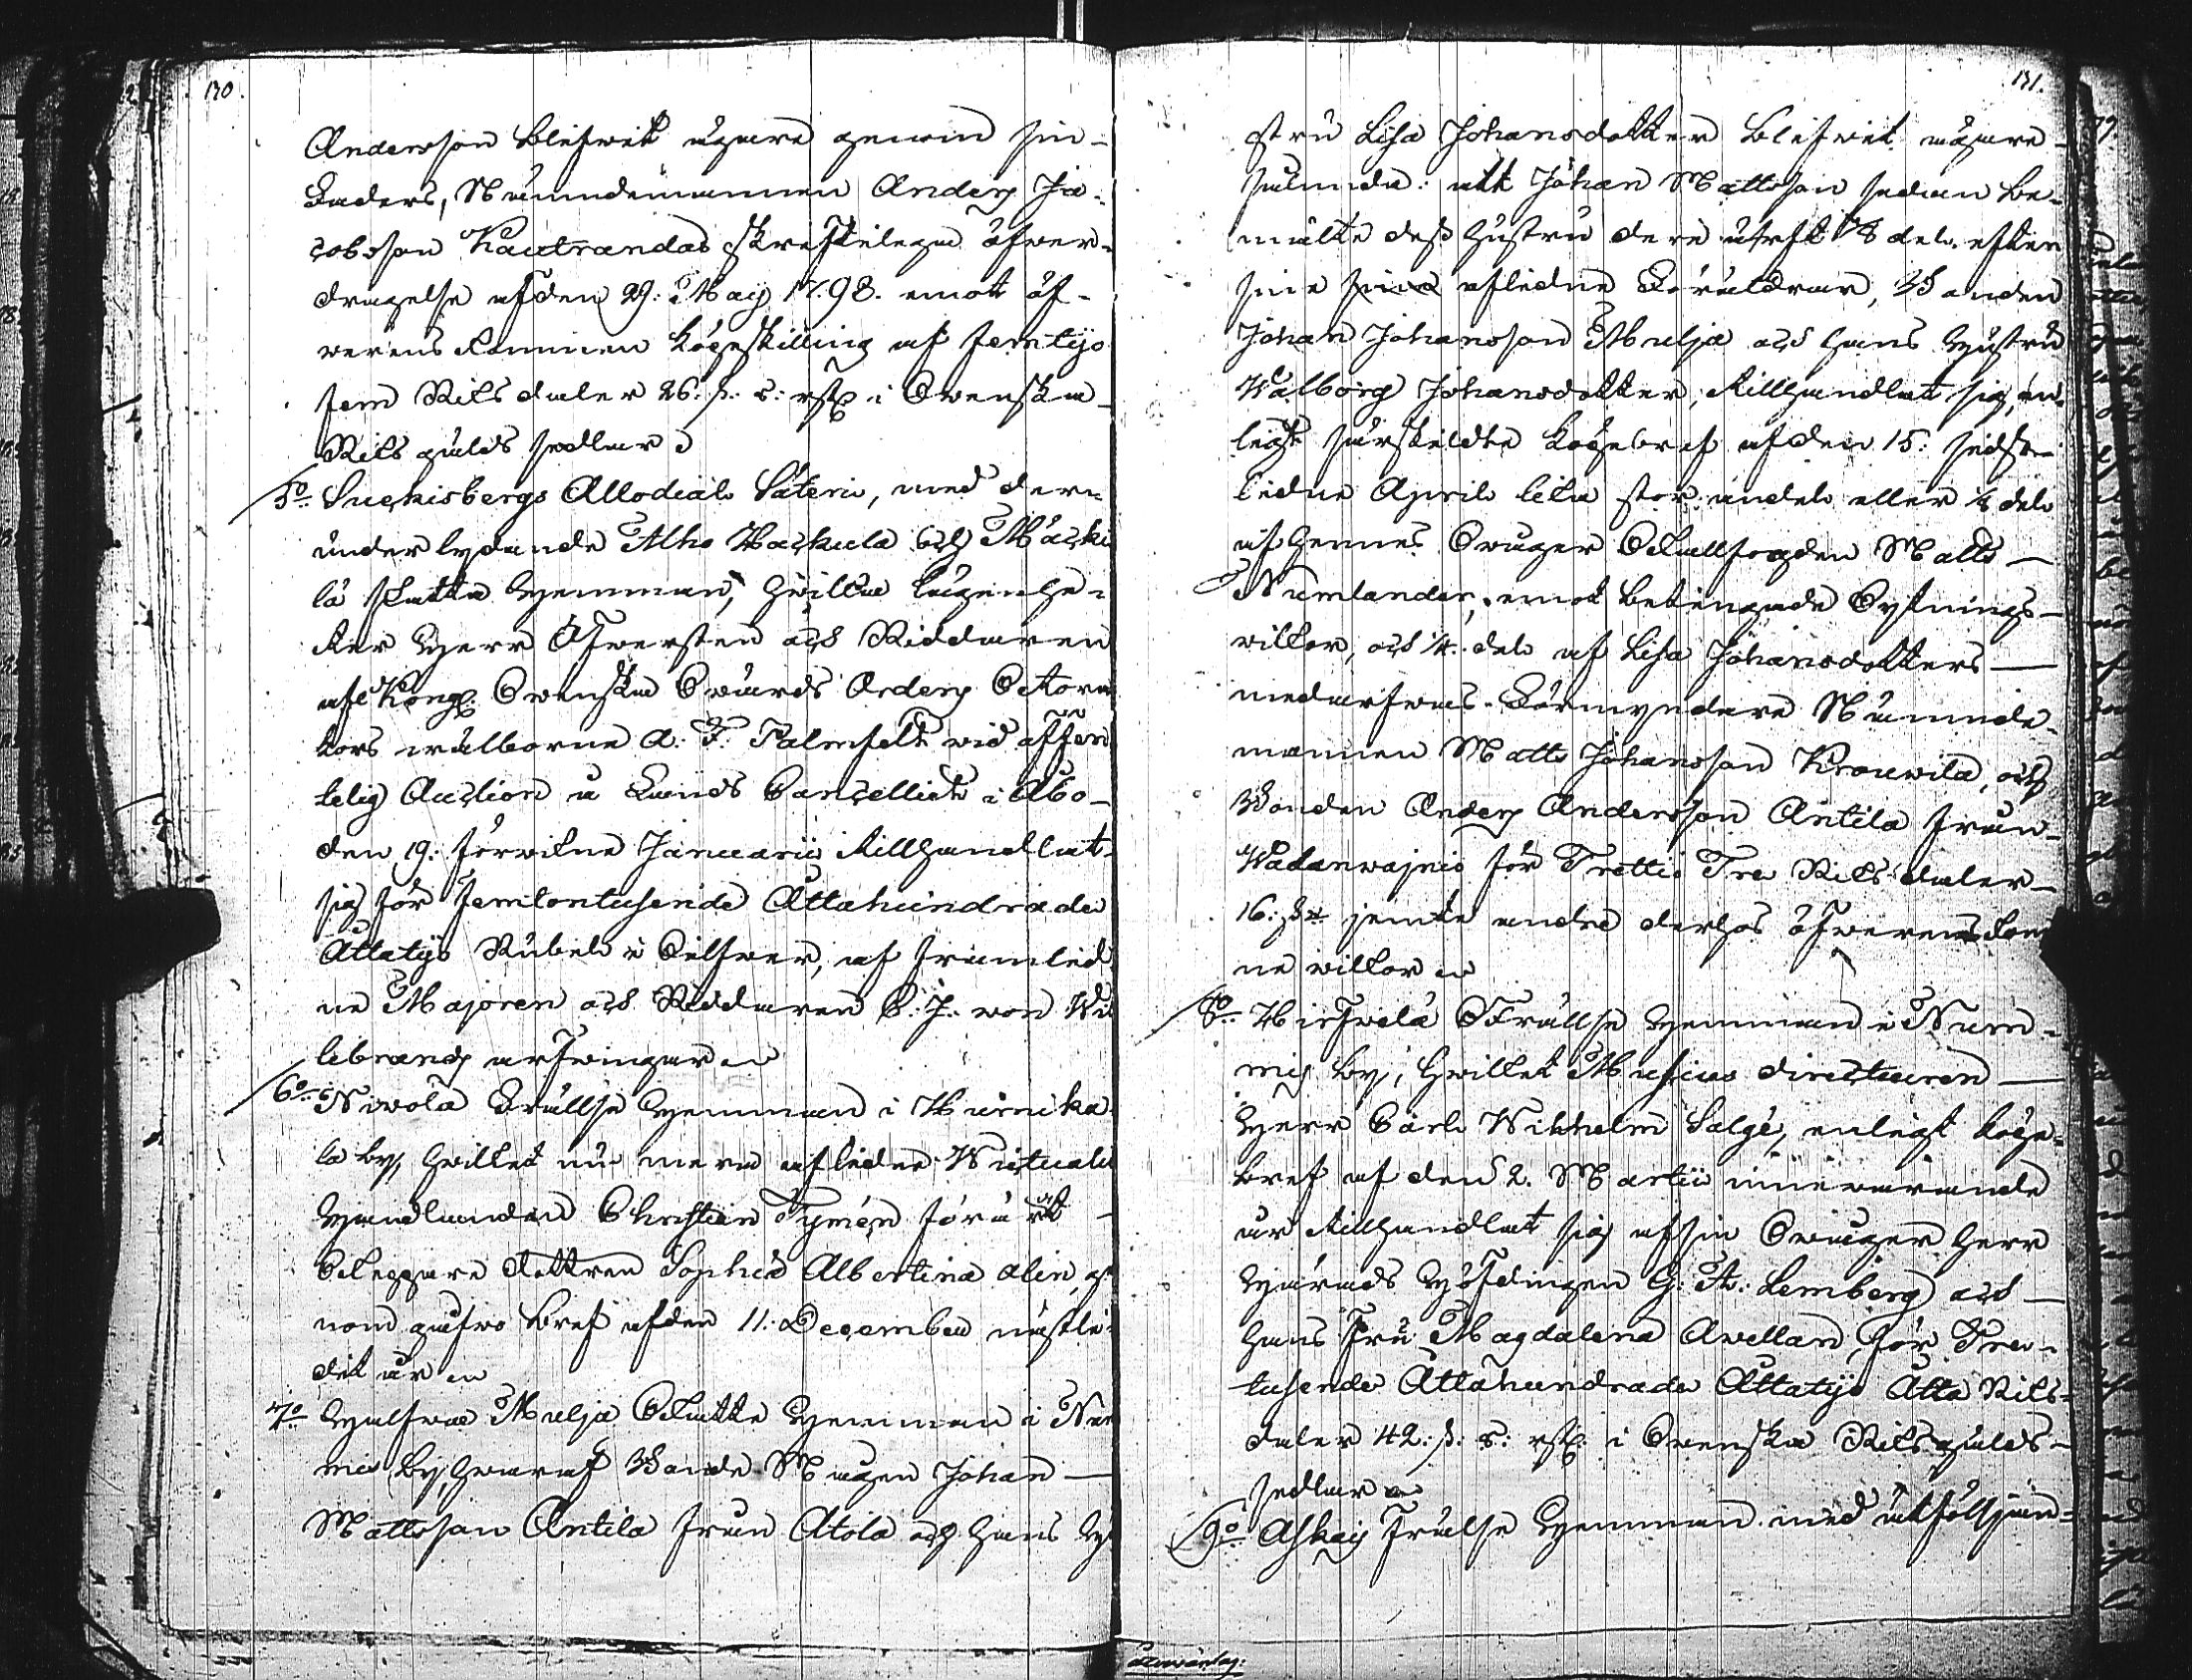 130.
Andersson blifwit ägare genom sin
Faders, Nämndemannen Anders Ja-
cobsson Kautrandas skrifteliga öfwer-
dragelse af den 29: Maij 1798. emot öf-
werens kommen köpeskilling af femtijo
fem Riksdaler 26: s: s: rst i Swenska
Riksgälds sedlar
5o Suckisbergs Allodial Säteri, med der-
under lydande Alho Hackula och Mäcki
lä skatte Hemman, hwilka lägenhe-
ter Herr Öfwersten och Riddaren
af Kongl. Swenska Swärds Orden Stora
kors wälborne A: F: Palmfelt wid offen
telig Auction å Lands Cancelliet i Åbo
den 19: förwikne Januarii tillhandlat
sig för femtontusende Åttahundrade
Åttatijo Rubel i Silfwer, af framled
ne Majoren och Riddaren C. J. von Wil
lebrands arfwingar
6o Nivola Frälse Hemman i Hurnika
la by, hwilket nu mera aflidne Victualie
Handlanden Christian Tymén förärt
Skeppare dottren Sophia Albertina Alin, ge
nom gåfwo bref af den 11: December nästle
dit år
7o Halfwa Mulja Skatte Hemman i Num
mis by, hwaraf Bonde Mågen Johan
Mattsson Antila från Atola och hans Hu
131.
stru Lisa Johansdotter blifwit ägare
sålunda: att Johan Mattsson sedan be-
mälte dess hustru dere ärft 1/8 del. efter
sine sina aflidne Föräldrar, Bonden
Johan Johansson Mulja och hans Hustru
Walborg Johansdotter, tillhandlat sig, en-
ligt särskildte köpebref af den 15: sidst-
lidne April lika stor andel eller 1/8 del
af hennes Swåger Stallfogden Matts
Numlander, emot betingade Sytnings-
wilkor, och 1/4. del af Lisa Johansdotters
medarfwas Förmyndare Nämnde-
mannen Matts Johansson Krouwila, och
Bonden Anders Andersson Antila från
Wadanwajnio för Trettio Tre Riksdaler
16: s: jemte andre derhos öfwerenskom
ne wilkor
8o Hirfwelä Frällse Hemman i Num-
mis by, hwilket Musius directeuren
Herr Carl Wilhelm Salgé, enligt köpe-
bref af den 2. Martii innewarande
år tillhandlat sig af sin Swåger Herr
Härads Höfdingen G: A: Lemberg och
hans Fru Magdalena Avellan, för Tre-
tusende Åttahundrade Åttatijo Åtta Riks-
daler 42: s: s: rst i Swenska Riksgälds-
sedlar
9o Askais Frälse Hemman med åtföljan-